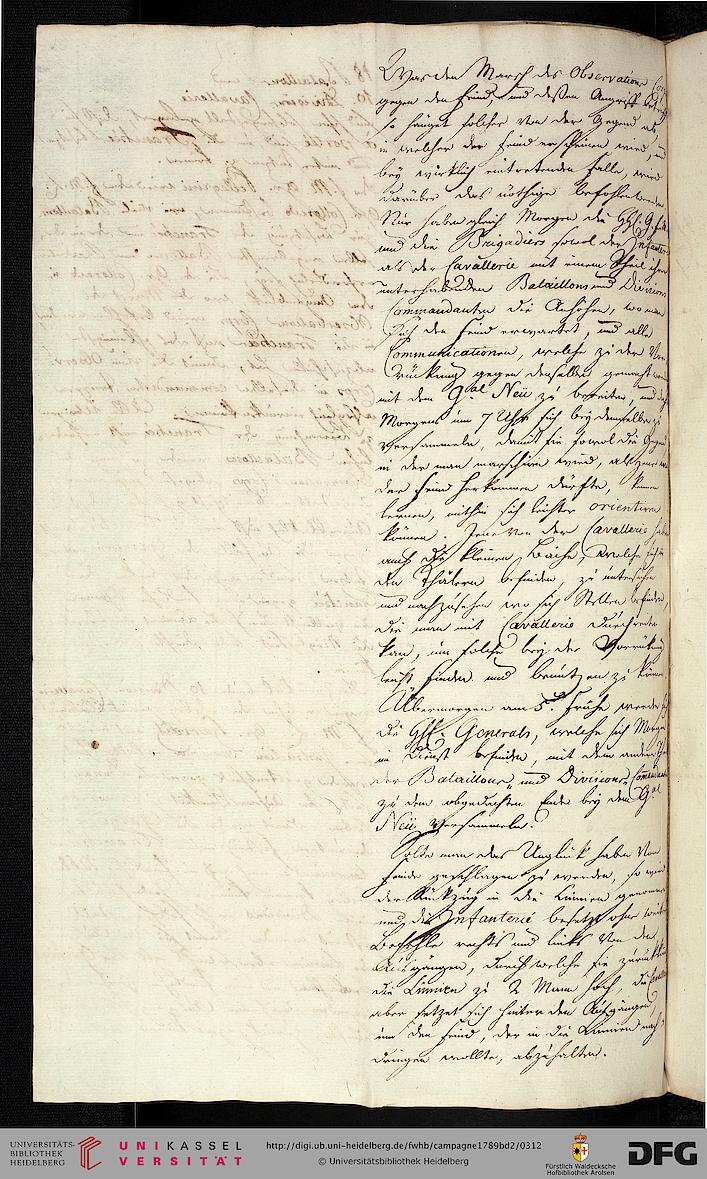 Was den Marsch des Observations Corps
gegen den Feind, und deßen Angriff betrift,
so hänget solches von der Gegend ab,
in welcher der Feind erscheinen wird, und
bey wirklich eintretenden Falle, wird
darüber das nöthige befohlen werden
Nur haben gleich Morgen die HH: G
und die Brigadiers sowol der Infanterie
als der Cavallerie mit einem Theil ihrer
unterhabenden Bataillons und Divisions
Commandanten die Anhöhen, wo man
sich den Feind erwartet, und alle
Communicationen, welche zu der Vor
rückung gegen denselben gemacht
mit dem Gral Neü zu bereiten, und
Morgens um 7 Uhr sich bey demselben zu
versammeln, damit sie sowol die Gegend
in der man marschiren wird, als
der Feind herkommen dürfte, kennen
lernen, mithin sich leichter orientiren
können. Jene von der Cavallerie haben
auch die kleinen Bäche, welche sich in
den Thälern befinden, zu untersuchen
und nachzusehen wo sich Stellen befinden,
die man mit Cavallerie durchreiten
kan, um solche bey der Vorrückung
leicht finden und benützen zu können
Übermorgen am 5t Frühe werden sich
die HH: Generals, welche sich Morgen
im Dienst befinden, mit dem andern Theil
der Bataillons- und Divisions- Commandanten
zu dem obgedachten Ende bey dem Gral
Neü versammeln.
Sollte man das Unglück haben vom
Feinde geschlagen zu werden, so wird
der Rückzug in die Linnien genommen
und die Infanterie besetzt ohne weitere
Befehle rechts und links von den
Ausgängen, durch welche sie zurück
die Linnien zu 2 Mann hoch, die Cavallerie
aber setzet sich hinter den Ausgängen,
um den Feind, der in die Linnien nach
dringen wollte, abzuhalten.
UNIVERSITÄTS-
BIBLIOTHEK
HEIDELBERG
UNIKASSEL
VERSITÄT
http://digi.ub.uni-heidelberg.de/fwhb/campagne1789bd2/0312
© Universitätsbibliothek Heidelberg
Fürstlich Waldecksche
Hofbibliothek Arolsen
DFG